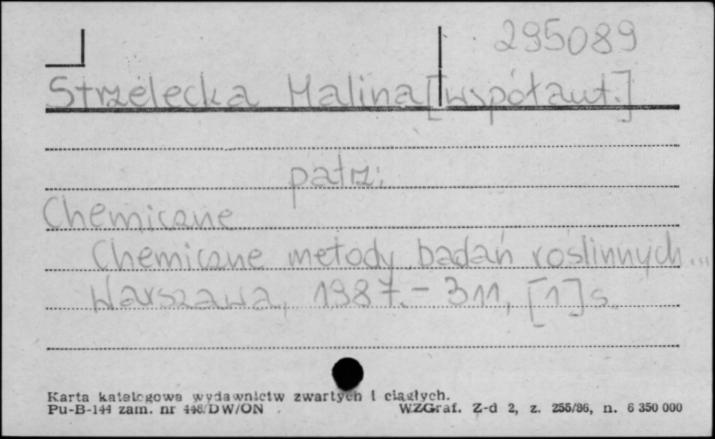 295089
Strzelecka Halina [współaut.]
patrz:
Chemiczne
Chemiczne metody badań roślinnych...
Warszawa, 1987. - 311, [1] s.
Karta katalogowa wydawnictw zwartych i ciągłych.
Pu-B-144 zam. nr 448/DW/ON WZGraf. Z-d 2, z. 255/86, n. 6 350 000